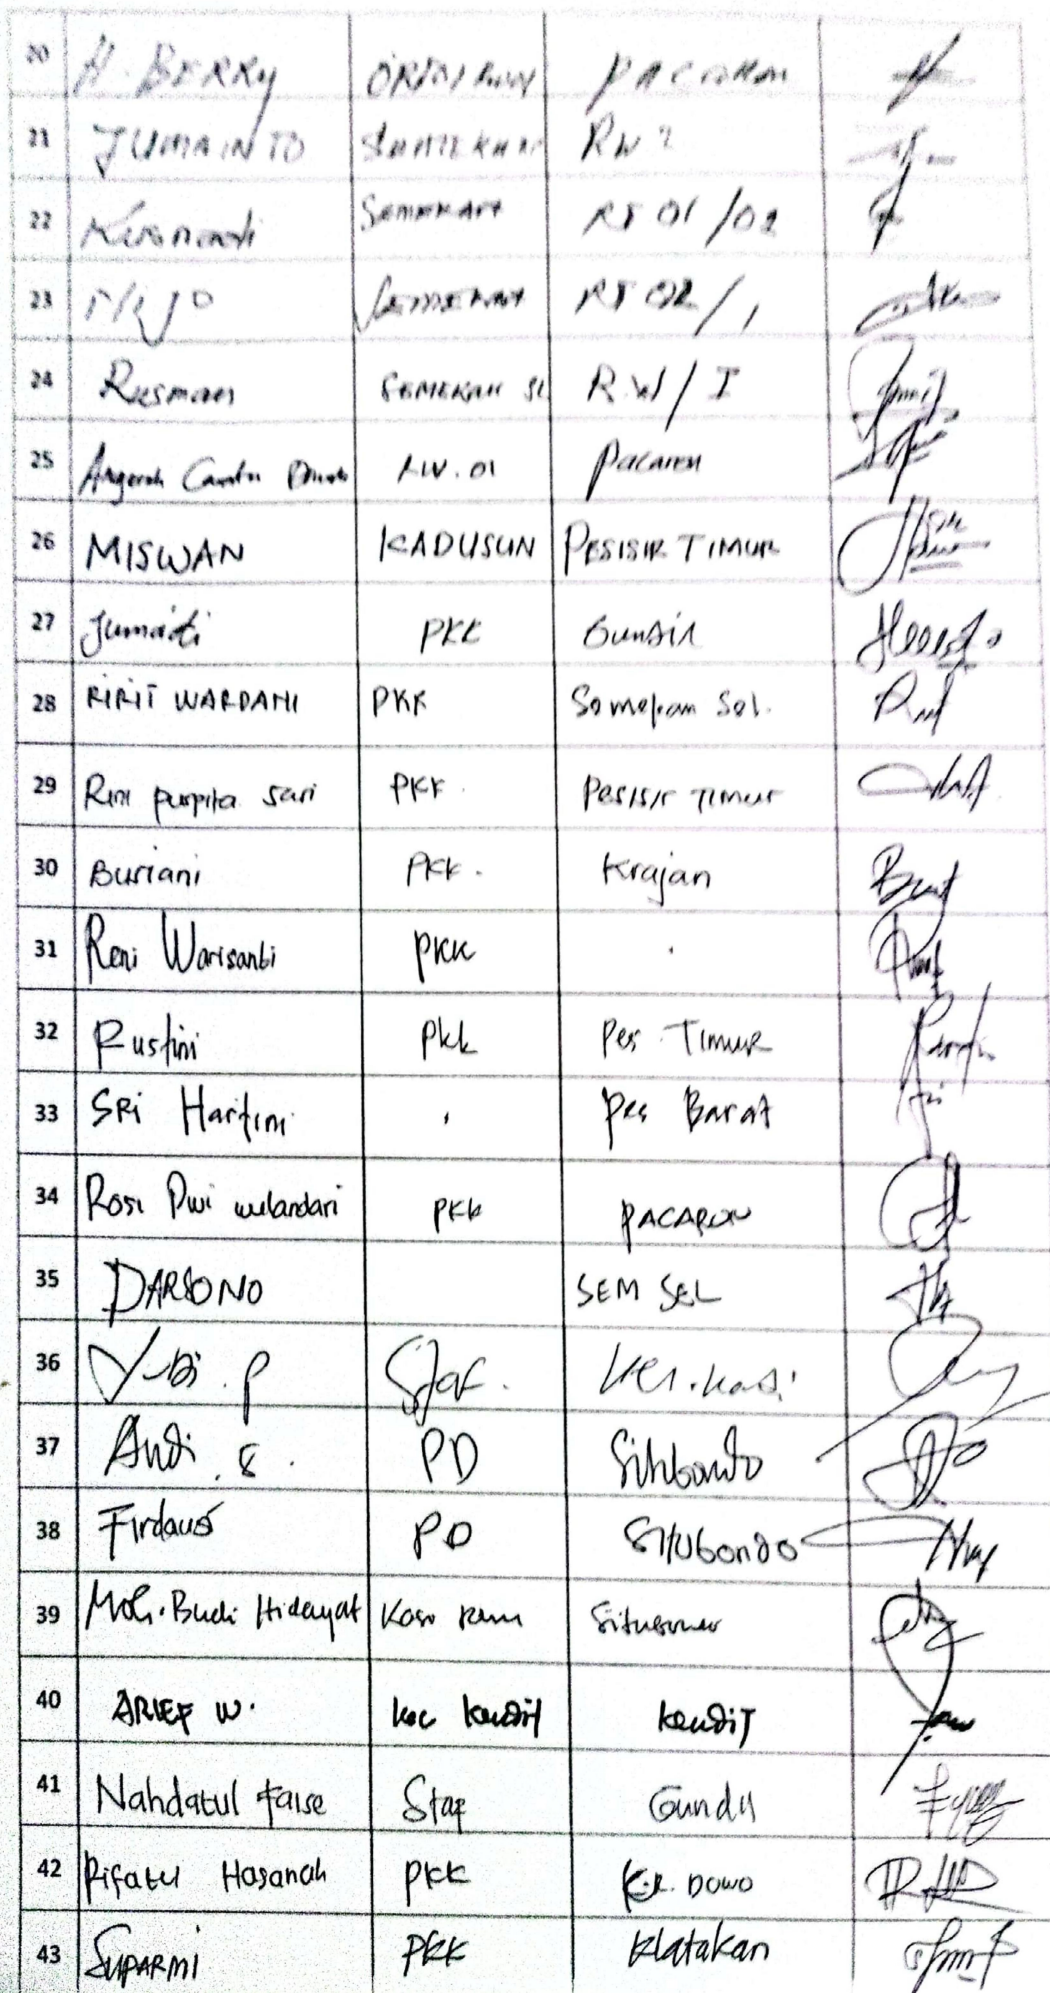 20 H. BERRY PACARAN
21 JUMAINTO RW 2
22 Kusnadi SEMEKAN RT 01/02
23 RT 02/1
24 Rusman SEMEKAN SL RW/I
25 RW.01 Pacaron
26 MISWAN KADUSUN PESISIR TIMUR
27 Jumaidi PKK Gundil
28 RIRIT WARDANI PKK Semekan Sel.
29 Rini puspita sari PKK. Pesisir Timur
30 Buriani PKK. Krajan
31 Reni Warisanti PKK
32 Rustini Pkk Pes Timur
33 SRi Hartini Pes Barat
34 Rosi Dwi wulandari PKK PACARON
35 DARSONO SEM SEL
36 Staf.
37 Andi. S. PD Situbondo
38 Firdaus PD Situbondo
39 Moh. Budi Hidayat
40 ARIEF W. kec kendit kendit
41 Nahdatul Faise Staf
42 Rifatul Hasanah PKK Kr. Dowo
43 SUPARMI PKK Klatakan